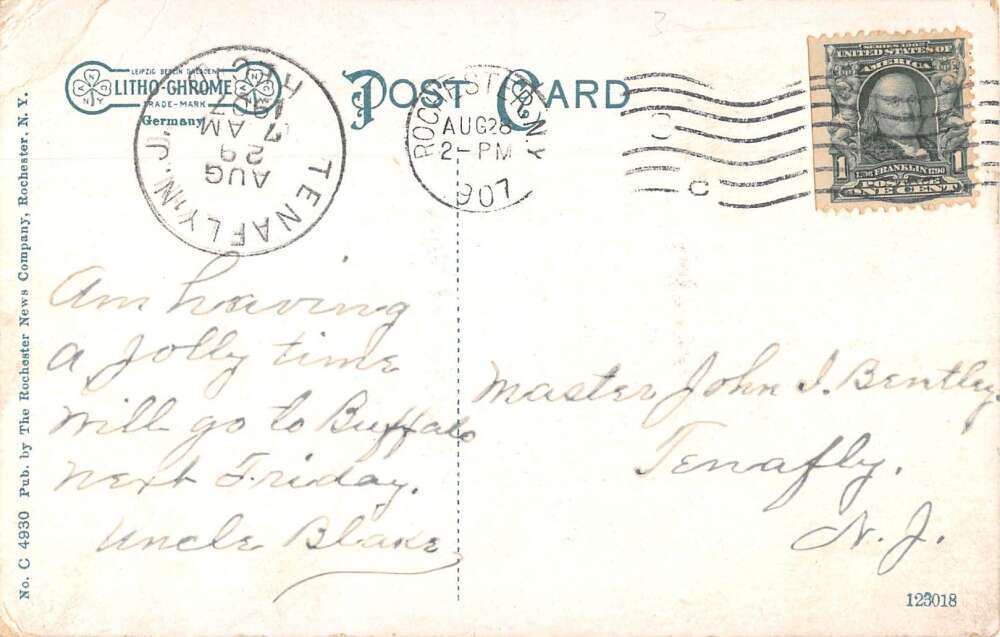 LEIPZIG BERLIN DRESDEN
LITHO-CHROME
TRADE-MARK
Germany
POST CARD
ROCHESTER, N.Y.
AUG 28
2-PM
1907
TENAFLY, N.J.
AUG
29
7 AM
SERIES 1902
UNITED STATES OF
AMERICA
1 FRANKLIN 1
POSTAGE
ONE CENT
No. C 4930 Pub. by The Rochester News Company, Rochester, N. Y.
Am having
a jolly time
Will go to Buffalo
next Friday.
Uncle Blake
Master John I. Bentley
Tenafly.
N. J.
123018